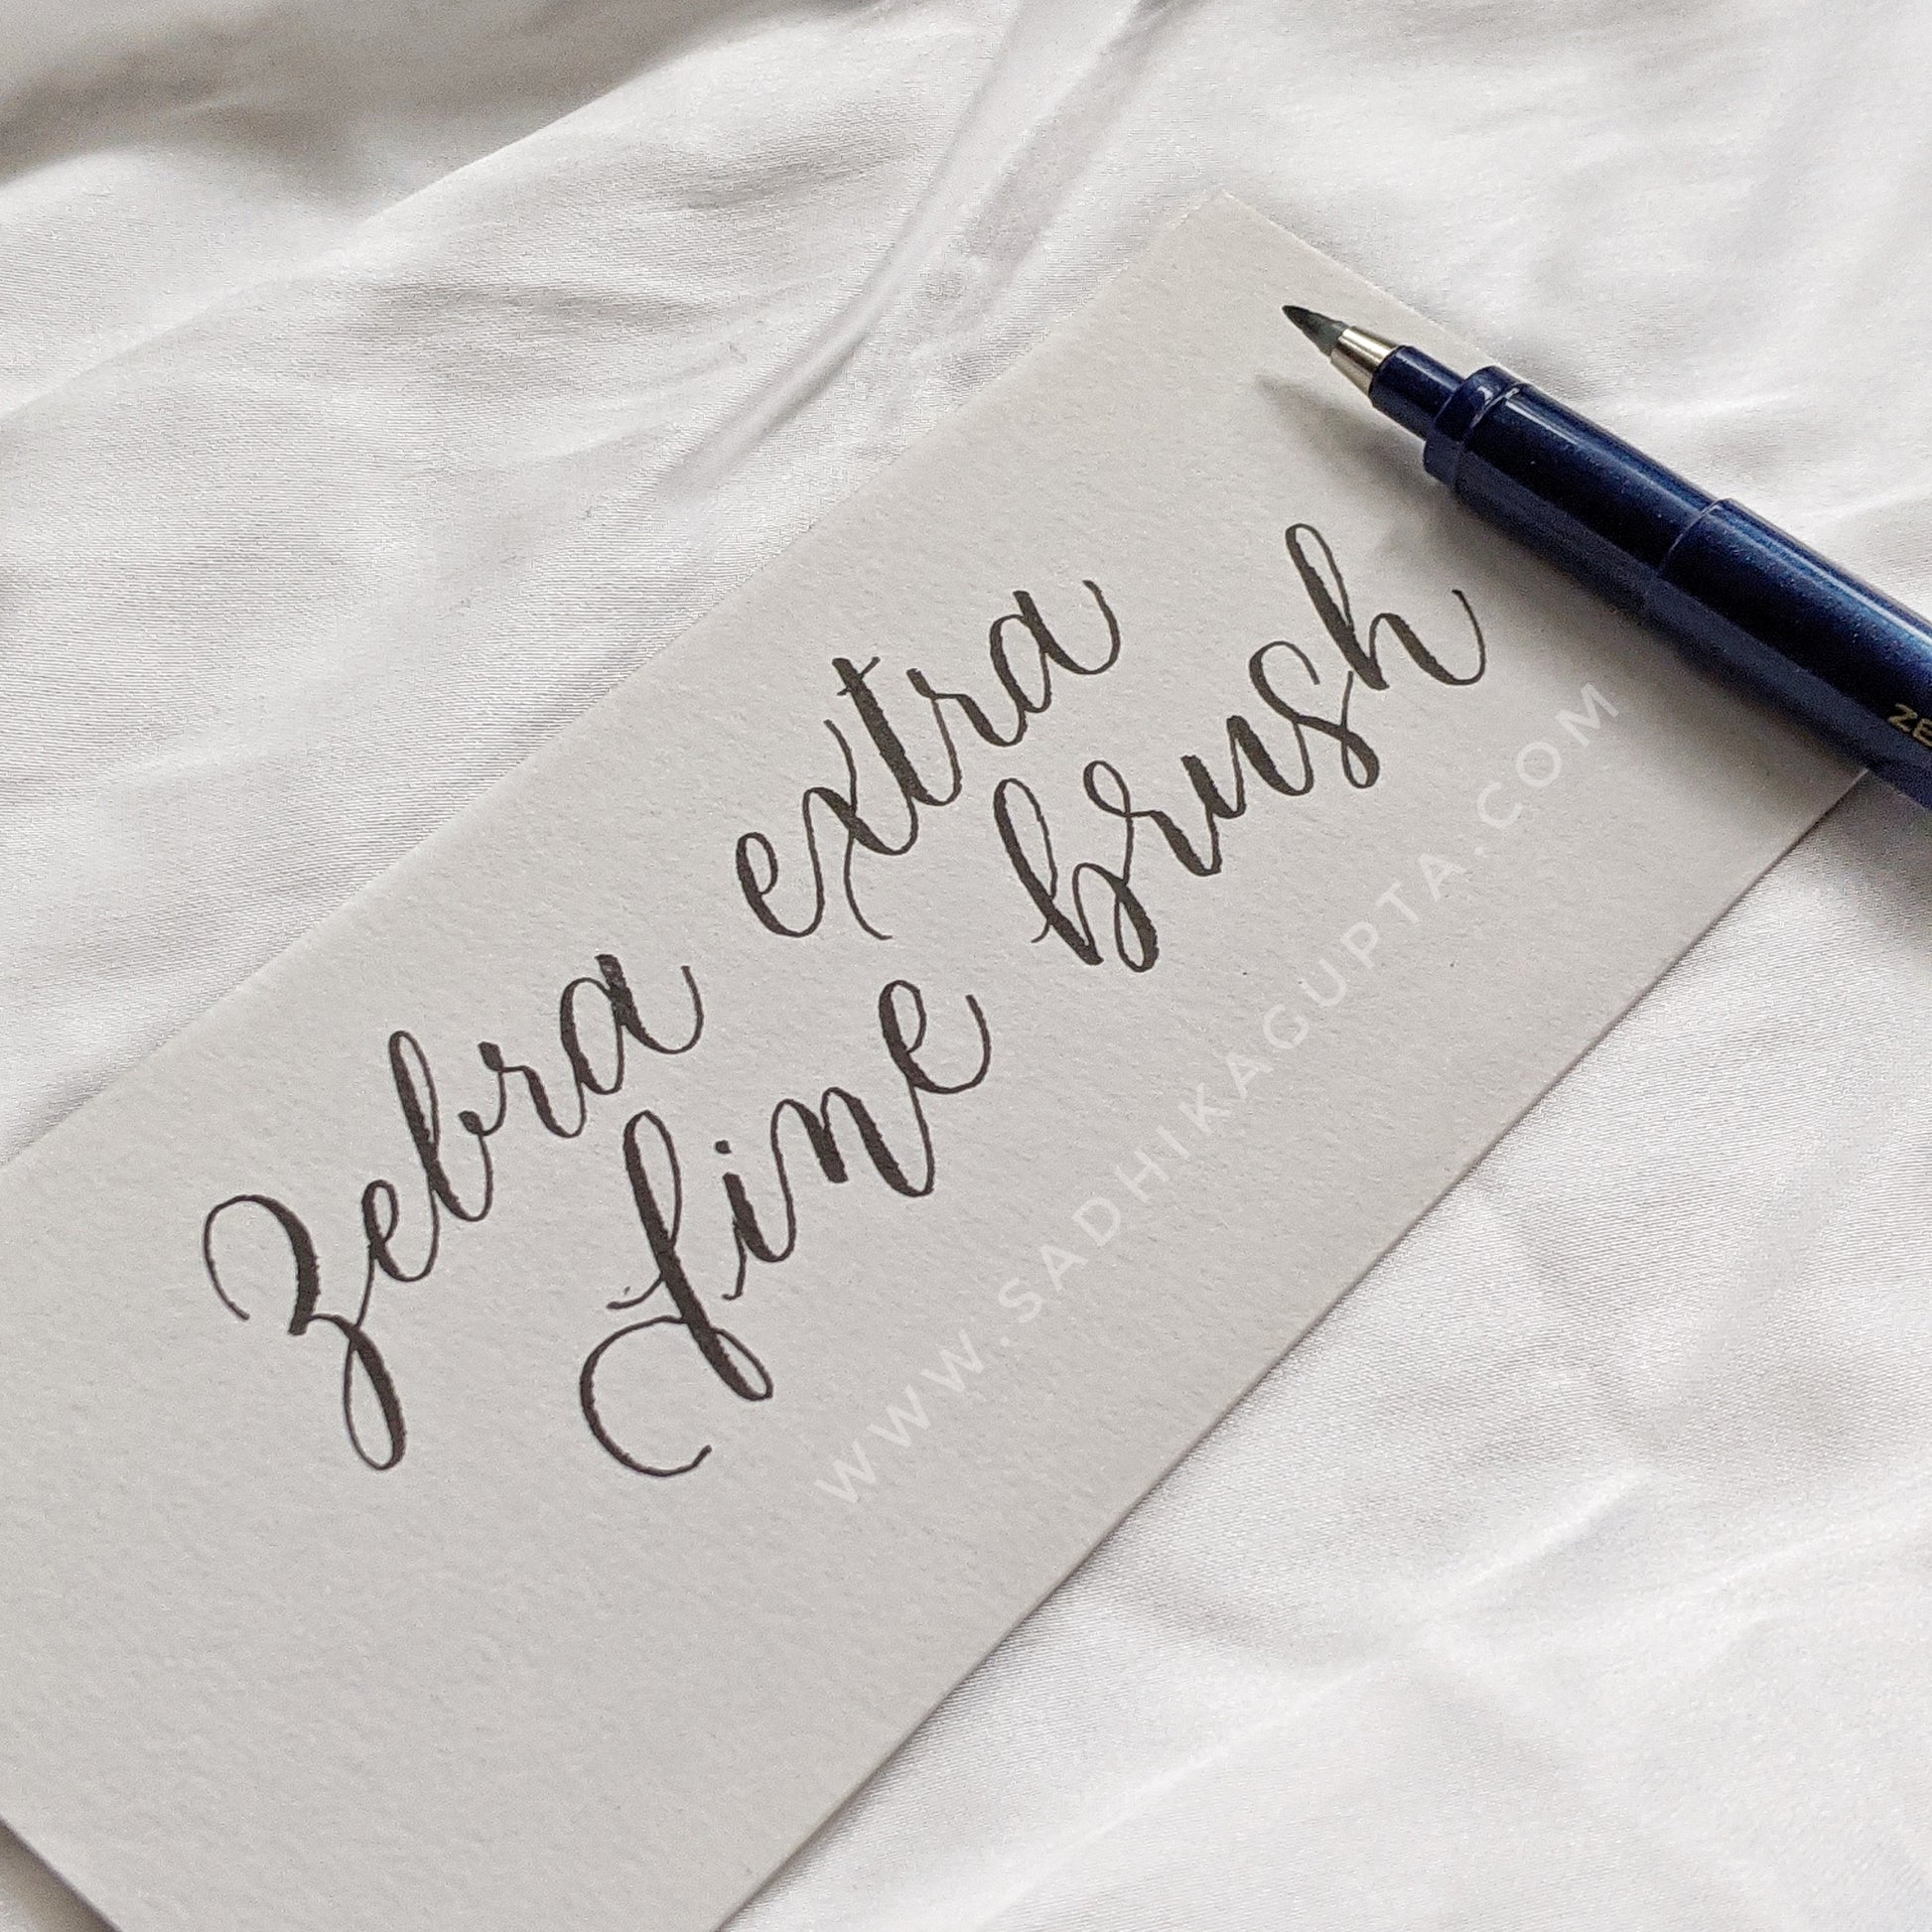 zebra extra
fine brush
WWW.SADHIKAGUPTA.COM
ZE